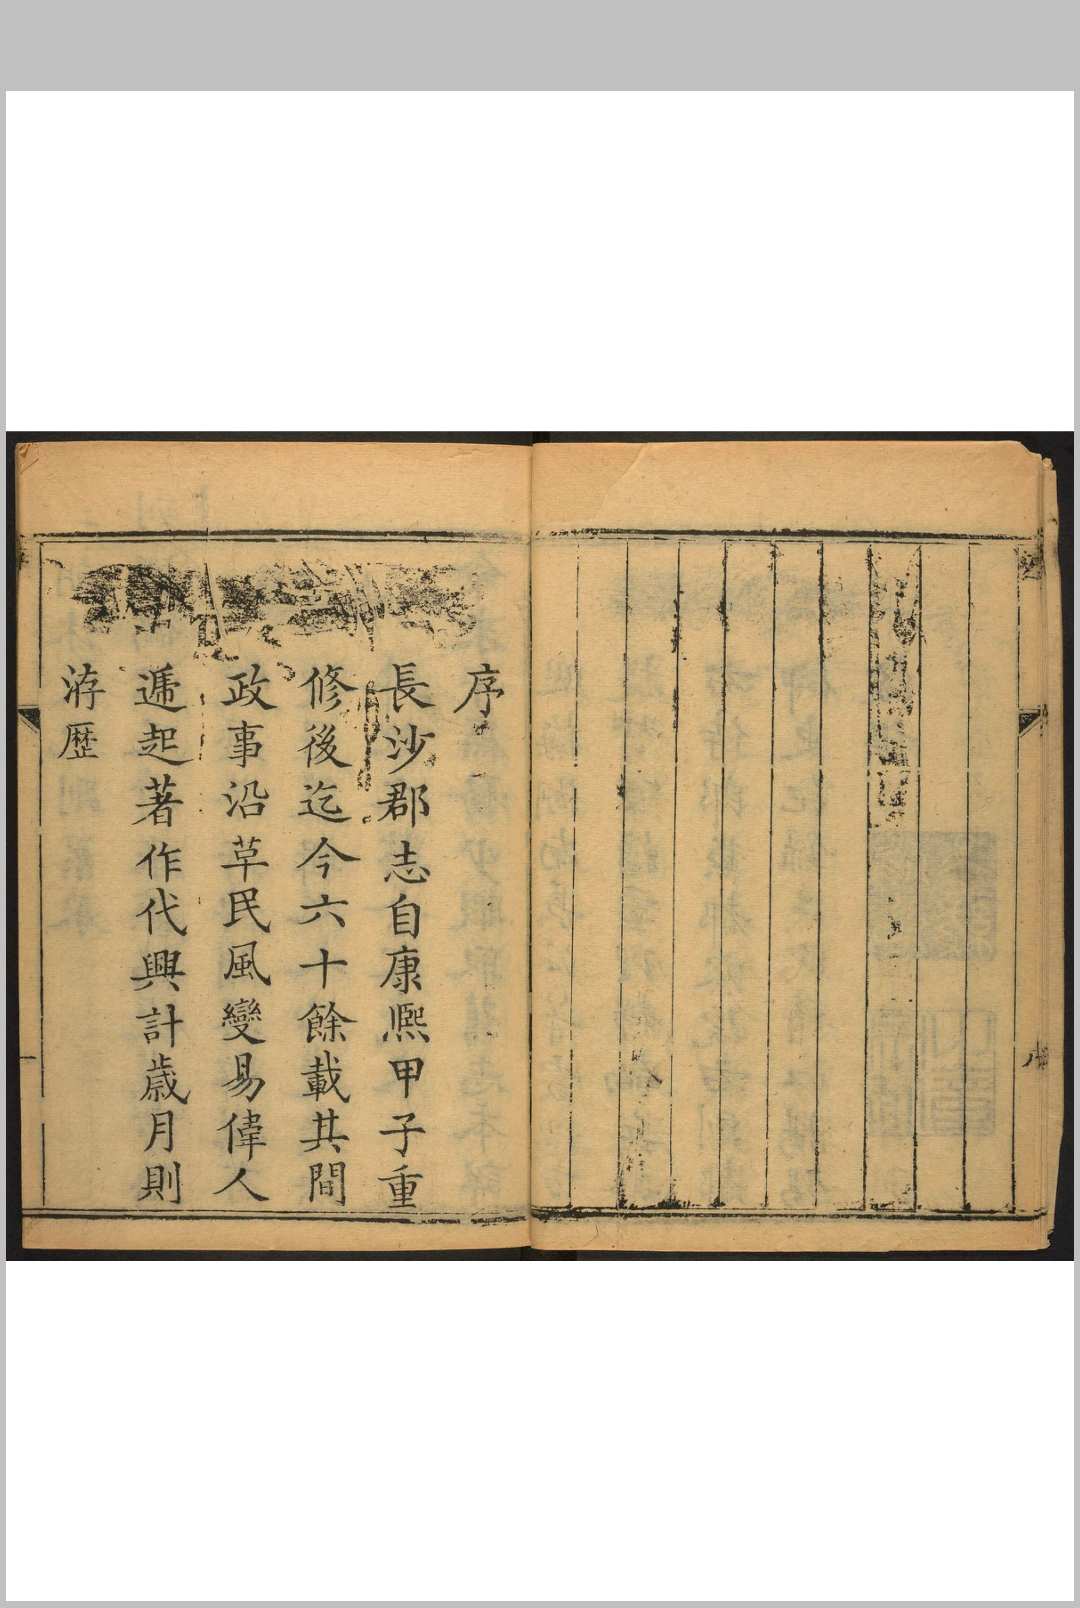 序
長沙郡志自康熙甲子重
修後迄今六十餘載其間
政事沿革民風變易偉人
遞起著作代興計歲月則
洊歷